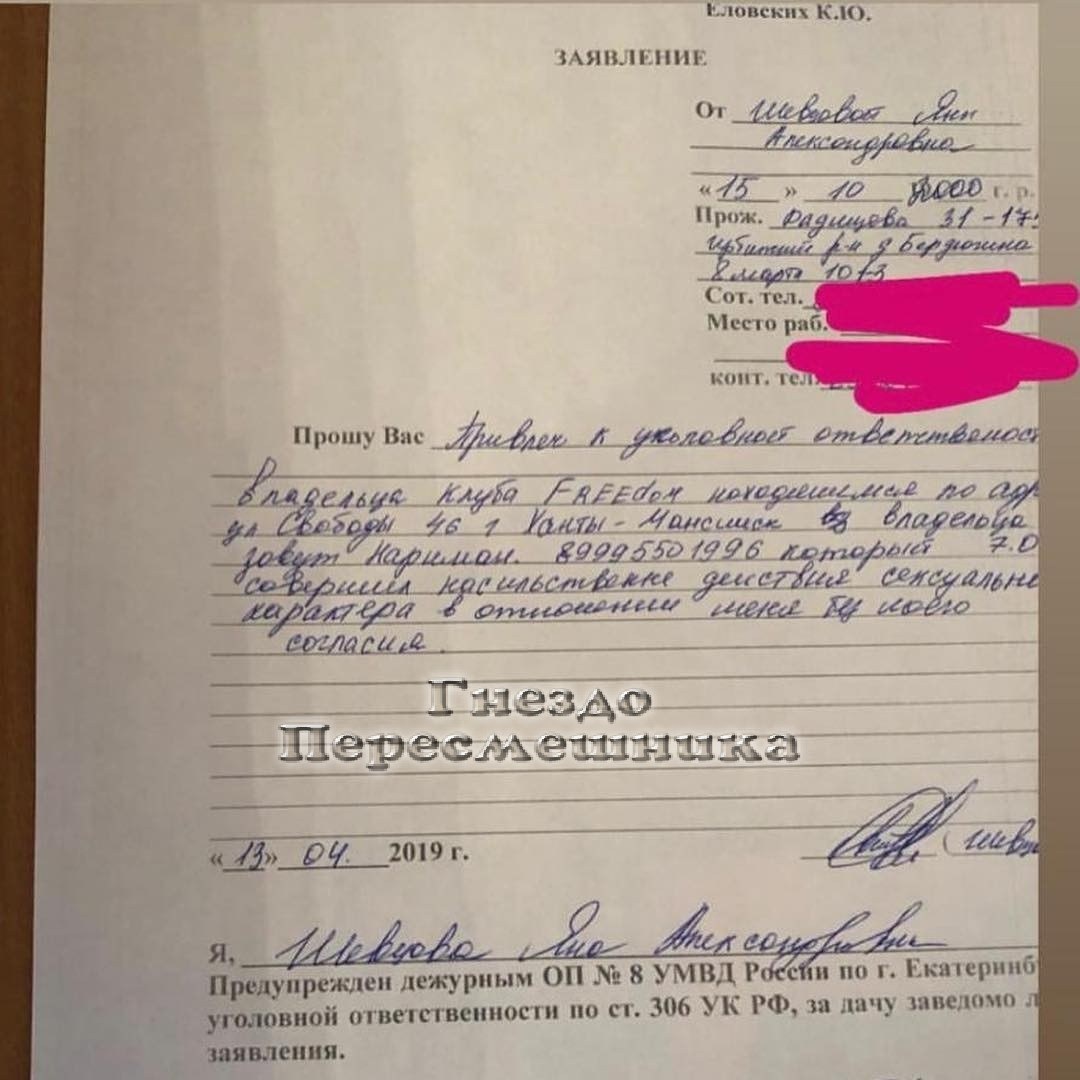 Еловских К.Ю.
ЗАЯВЛЕНИЕ
От Шевцовой Яны
Александровна
«15» 10 2000 г. р.
Прож. Радищева 31-17
Ирбитский р-н д Бердюгина
8 марта 10
Сот. тел.
Место раб.
конт. тел.
Прошу Вас Привлеч к уголовной ответственост
владельца клуба FREEdom находяшимся по адр
ул Свободы 46 г Ханты-Мансийск владельца
зовут Нариман. 89995501996 который 7.0
совершил насильственне действия сексуально
характера в отношении меня без моего
согласия.
Гнездо
Пересмешника
«13» 04. 2019 г.
(Шевц
Я, Шевцова Яна Александровна
Предупрежден дежурным ОП № 8 УМВД России по г. Екатеринбу
уголовной ответственности по ст. 306 УК РФ, за дачу заведомо л
заявления.